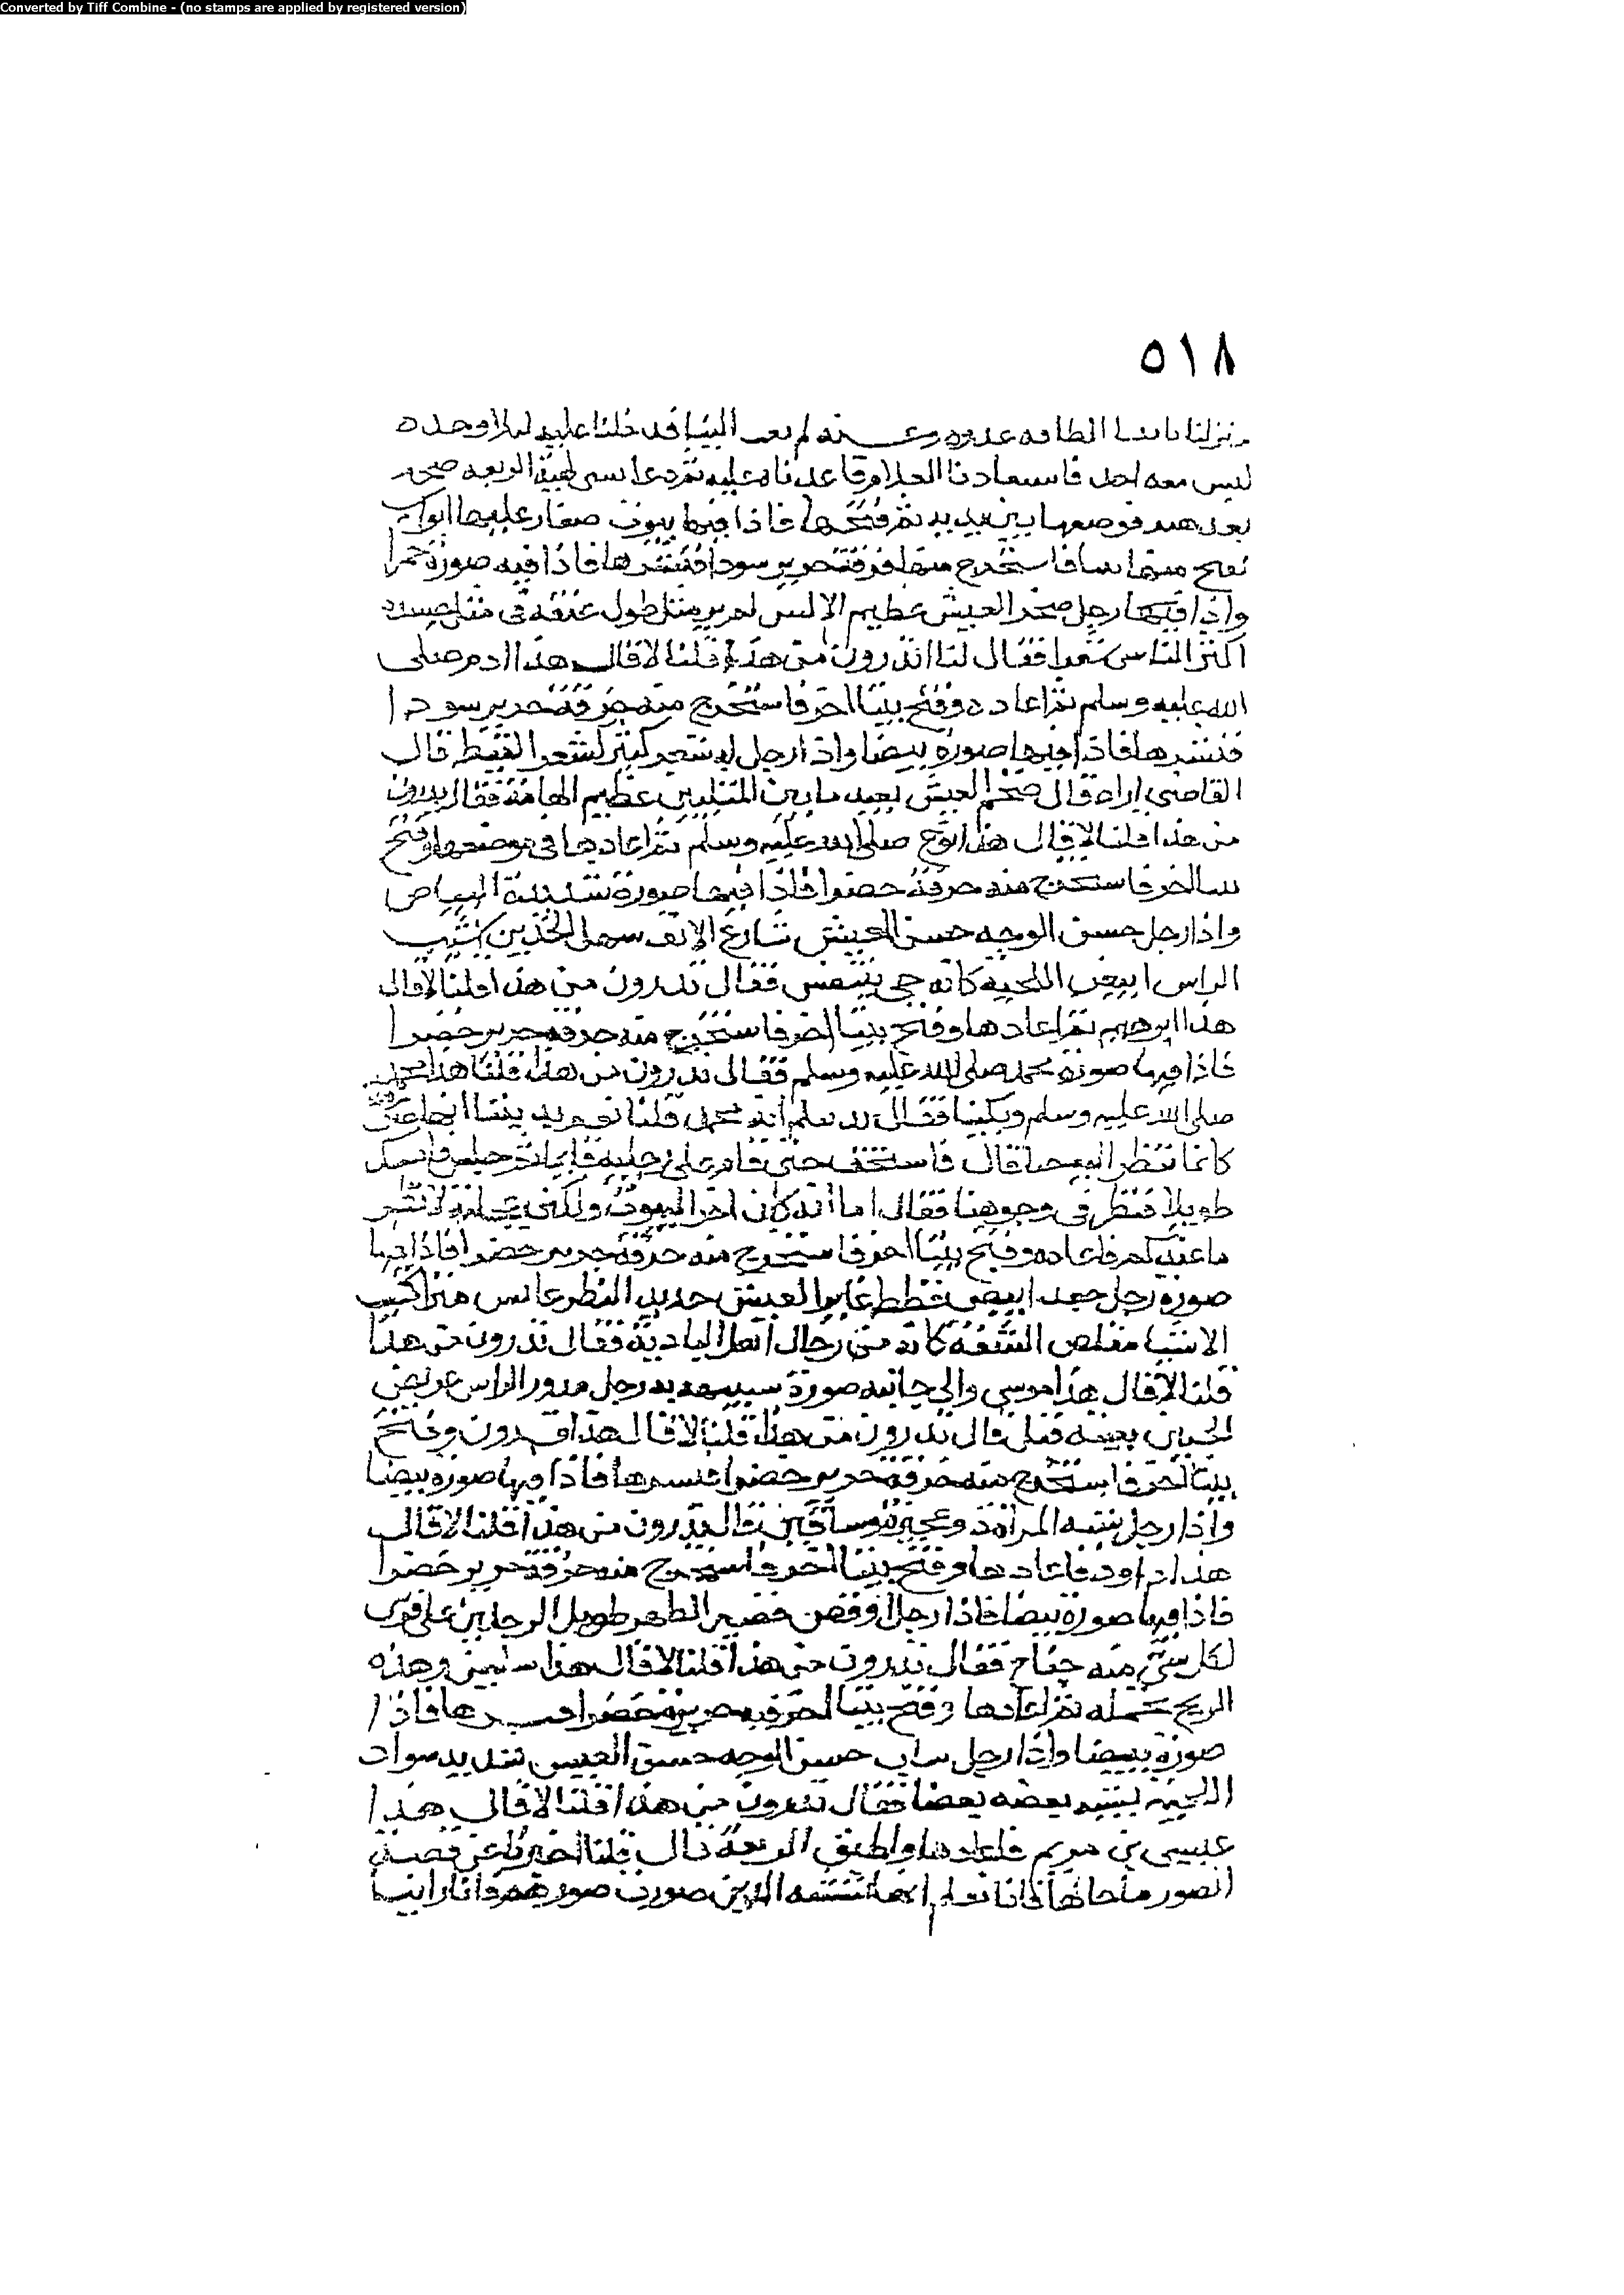 Converted by Tiff Combine - (no stamps are applied by registered version)
٥١٨
منزلنا الطافه عدوه وعشية ثم بعث الينا فدخلنا عليه ليلا وحده
ليس معه احد فاستعادنا الكلام فاعدناه عليه ثم دعا بشي كهيئة الربعة ضخمه
فوضعها بين يديه ثم فتحها فاذا فيها بيوت صغار عليها ابواب
ففتح منها بيتا فاستخرج منها خرقة حرير سودا فنشرها فاذا فيه صورة حمرا
واذا فيها رجل ضخم العينين عظيم الاليتين لم ير مثل طول عنقه في مثل جسده
اكثر الناس شعرا فقال لنا اتدرون من هذا قلنا لا قال هذا ادم صلى
الله عليه وسلم ثم اعاده وفتح بيتا اخر فاستخرج منه خرقة حرير سودا
فنشرها فاذا فيها صورة بيضا واذا رجل له شعر كثير كشعر القبط قال
القاضي اراه قال ضخم العينين بعيد ما بين المنكبين عظيم الهامة فقال تدرون
من هذا قلنا لا قال هذا نوح صلى الله عليه وسلم ثم اعادها في موضعها وفتح
بيتا اخر فاستخرج منه خرقة خضرا فاذا فيها صورة شديدة البياض
واذا رجل حسن الوجه حسن العينين شارع الانف سهل الخدين اشيب
الراس ابيض اللحية كانه حي يتنفس فقال تدرون من هذا قلنا لا قال
هذا ابرهيم ثم اعادها وفتح بيتا اخر فاستخرج منه خرقة حرير خضرا
فاذا فيها صورة محمد صلى الله عليه وسلم فقال تدرون من هذا قلنا هذا محمد
صلى الله عليه وسلم وبكينا فقال انه محمد قلنا نعم
كانما ننظر اليه حيا قال فاستخف حتى قام على رجليه قايما ثم جلس فامسك
طويلا فنظر في وجوهنا فقال اما انه كان اخر البيوت ولكني عجلته لانظر
ما عندكم فاعاده وفتح بيتا اخر فاستخرج منه خرقة حرير خضرا فاذا فيها
صورة رجل جعد ابيض قطط غاير العينين حديد النظر عابس متراكب
الاسنان مقلص الشفة كانه من رجال اهل البادية فقال تدرون من هذا
قلنا لا قال هذا موسى والى جانبه صورة شبيهه به رجل مدور الراس عريض
الجبين بعينه قبل قال تدرون من هذا قلنا لا قال هذا هرون وفتح
بيتا اخر فاستخرج منه خرقة حرير خضرا فنشرها فاذا فيها صورة بيضا
واذا رجل شبه المراة ذو عجيزة وساقين قال تدرون من هذا قلنا لا قال
هذا داود فاعادها وفتح بيتا اخر فاستخرج منه خرقة حرير خضرا
فاذا فيها صورة بيضا فاذا رجل اوقص قصير الظهر طويل الرجلين على فرس
لكل شي منه جناح فقال تدرون من هذا قلنا لا قال هذا سليمن وهذه
الريح تحمله ثم اعادها وفتح بيتا اخر فيه حريرة خضرا فنشرها فاذا
صورة بيضا واذا رجل شاب حسن الوجه حسن العينين شديد سواد
اللحية يشبه بعضه بعضا فقال تدرون من هذا قلنا لا قال هذا
عيسى بن مريم فاعادها واطبق الربعة قال قلنا اخبرنا عن قصة
الصور ما حالها فانا نعلم انها تشبه الذين صورت صورهم فانا راينا